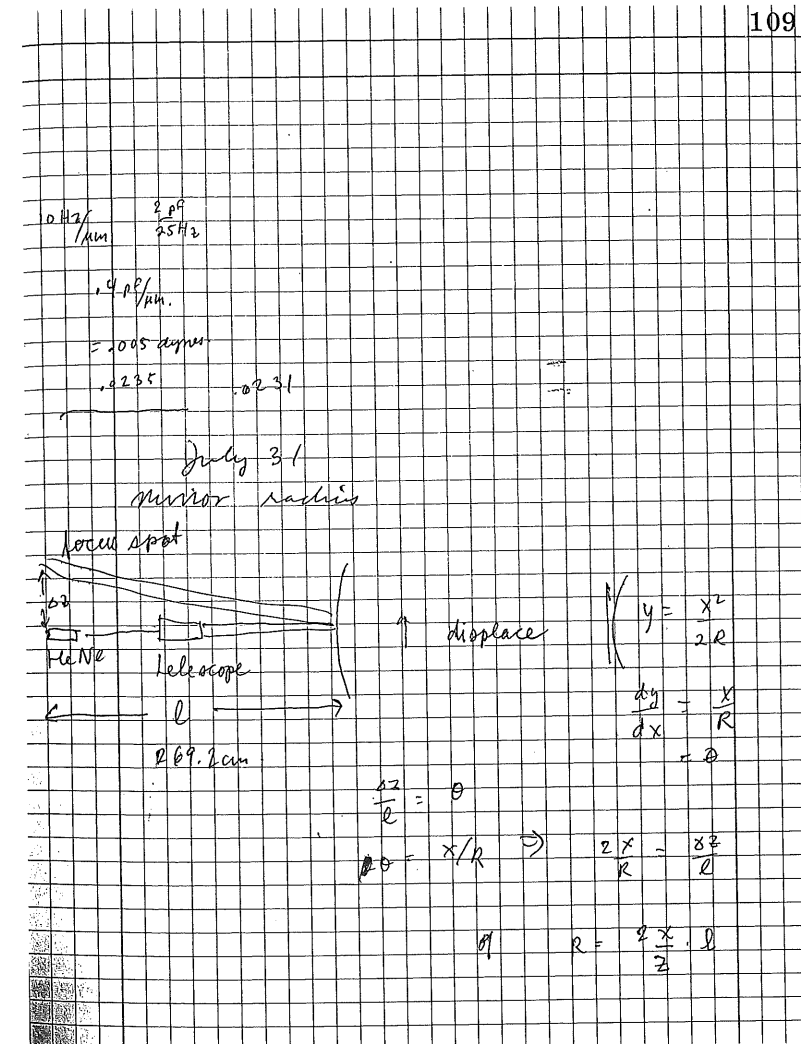 109
10 Hz/μm 2 pf/25Hz
.4 pf/μm.
= .005 dynes
.0235 .0231
July 31
mirror radius
focus spot
Δz
HeNe
telescope
l
269.2 cm
displace
y = x²/2R
dy/dx = x/R
= θ
Δz/l = θ
θ = x/R ⇒ 2x/R = Δz/l
or R = 2x/z · l